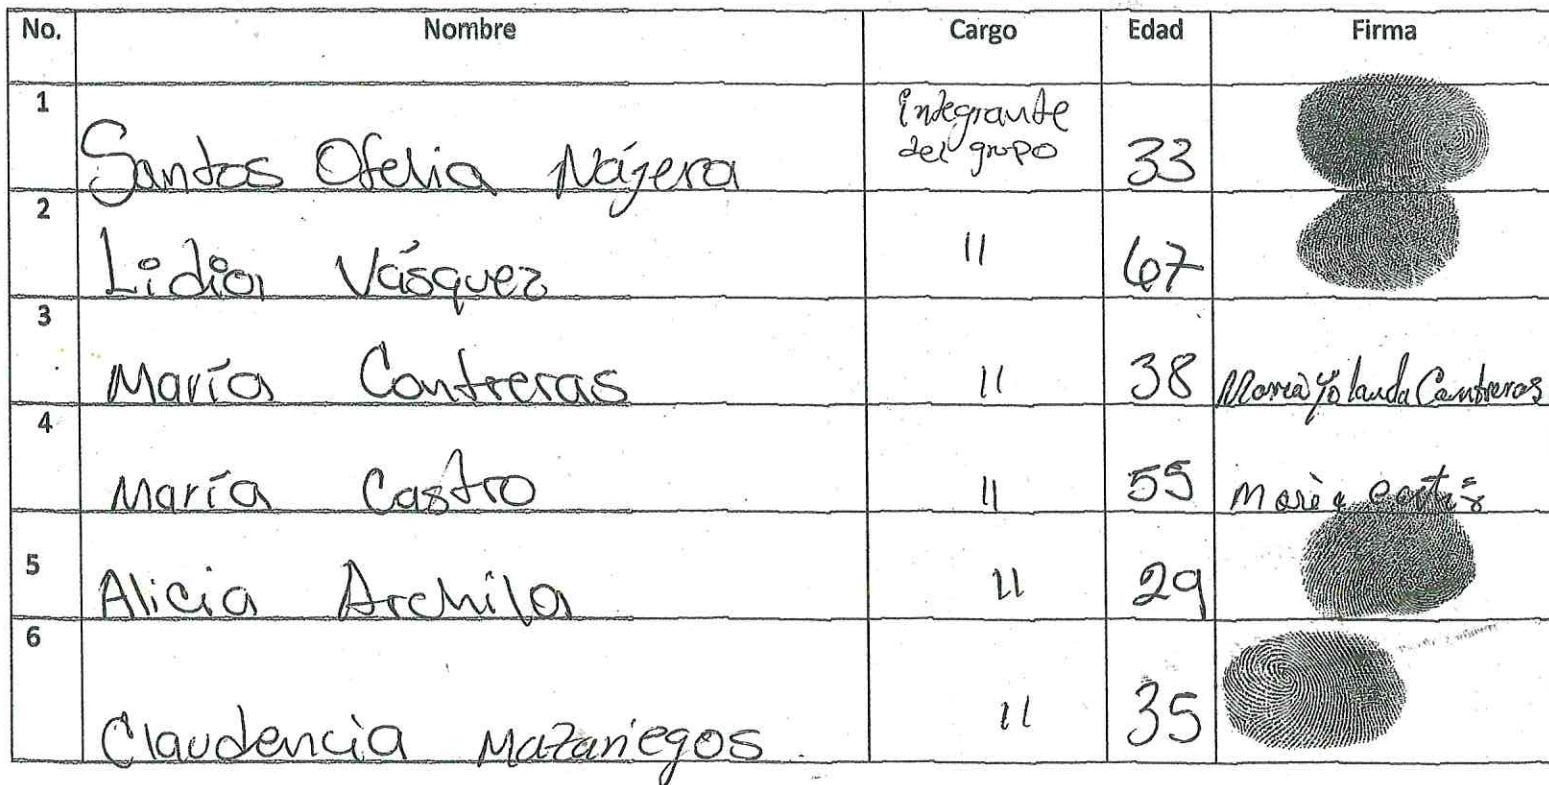 No. Nombre Cargo Edad Firma
1 Santos Ofelia Nájera Integrante del grupo 33
2 Lidia Vásquez 11 67
3 María Contreras 11 38 María Yolanda Contreras
4 María Castro 11 55 María
5 Alicia Archila 11 29
6 Claudencia Mazariegos 11 35